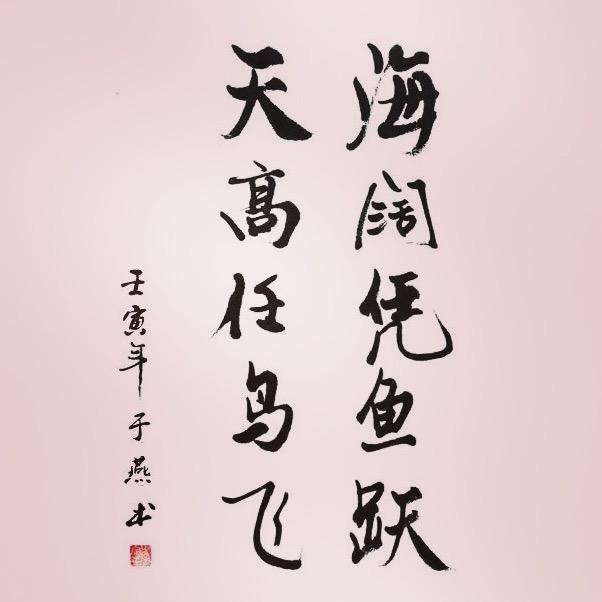 海阔凭鱼跃
天高任鸟飞
壬寅年于燕书